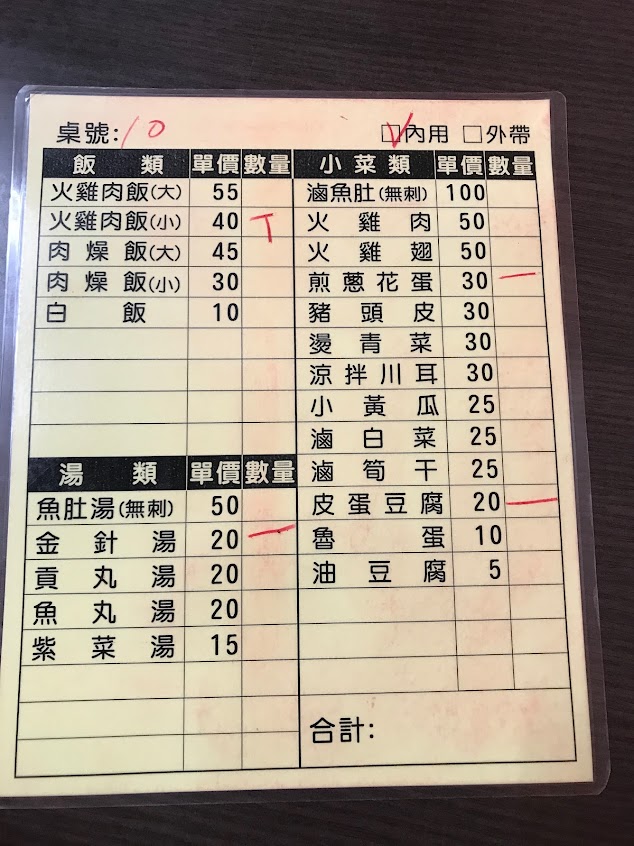 桌號:10
☑內用 □外帶
飯類 單價 數量
火雞肉飯(大) 55
火雞肉飯(小) 40 T
肉燥飯(大) 45
肉燥飯(小) 30
白飯 10
湯類 單價 數量
魚肚湯(無刺) 50
金針湯 20 一
貢丸湯 20
魚丸湯 20
紫菜湯 15
小菜類 單價 數量
滷魚肚(無刺) 100
火雞肉 50
火雞翅 50
煎蔥花蛋 30 一
豬頭皮 30
燙青菜 30
涼拌川耳 30
小黃瓜 25
滷白菜 25
滷筍干 25
皮蛋豆腐 20 一
魯蛋 10
油豆腐 5
合計: